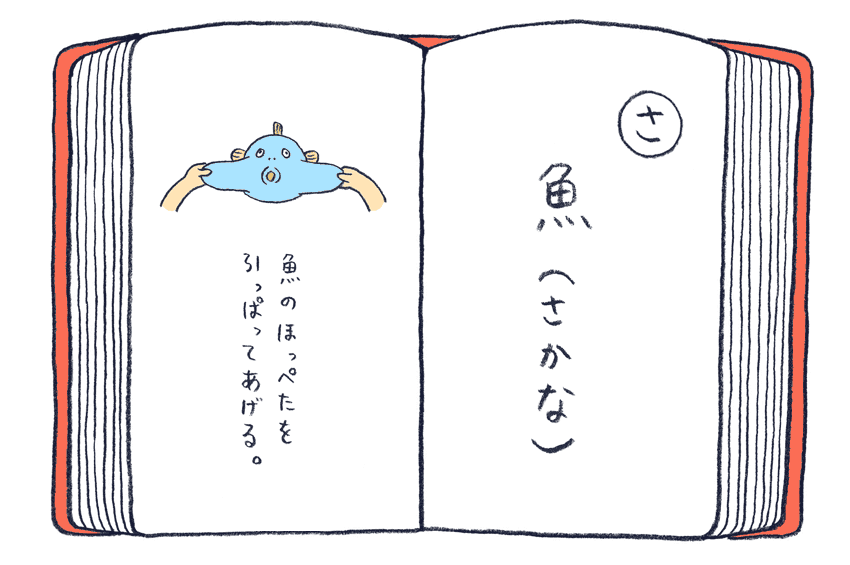 さ
魚（さかな）
魚のほっぺたを
引っぱってあげる。